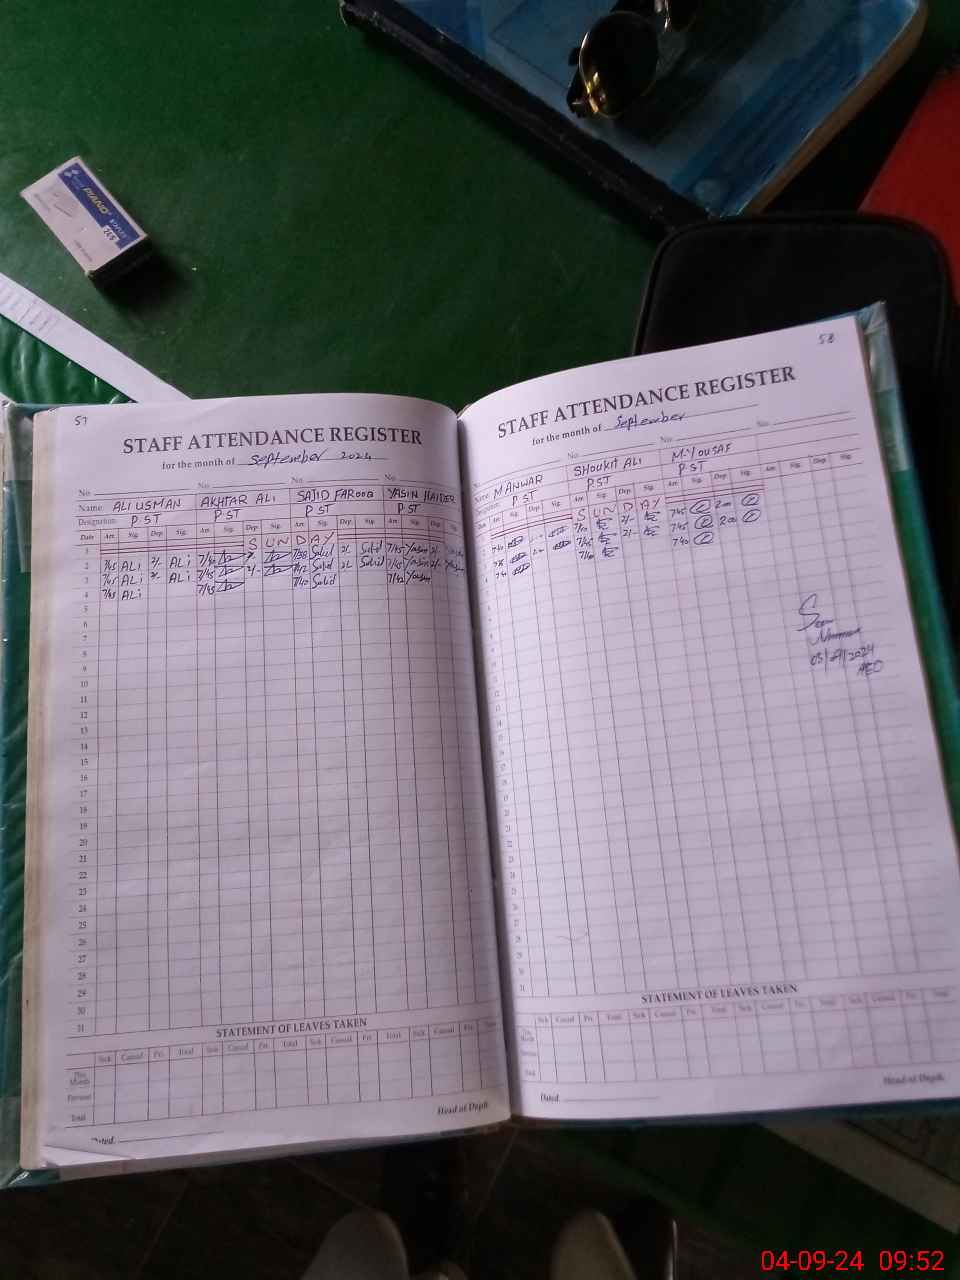 PIANO
57
STAFF ATTENDANCE REGISTER
for the month of September 2024
No. No. No. No.
Name: ALI USMAN AKHTAR ALI SAJID FAROOQ YASIN HAIDER
Designation: PST PST PST PST
Date Arr. Sig. Dep. Sig. Arr. Sig. Dep. Sig. Arr. Sig. Dep. Sig. Arr. Sig. Dep. Sig.
1 SUNDAY
2 7/45 ALi 2/- ALi 7/45 Yasin 2/-
3 7/45 ALi 2/- ALi 7/45 2/- 7/45 Yasin 2/-
4 7/45 ALi 7/45 7/40 7/42 Yasin
5
6
7
8
9
10
11
12
13
14
15
16
17
18
19
20
21
22
23
24
25
26
27
28
29
30
31
STATEMENT OF LEAVES TAKEN
Sick Casual Pri. Total Sick Casual Pri. Total Sick Casual Pri. Total Sick Casual Pri. Total
This Month
Previous
Total
Head of Deptt.
Dated.
58
STAFF ATTENDANCE REGISTER
for the month of September
No. No. No. No.
Name: MANWAR SHOUKIT ALI M.YOUSAF
Designation: PST PST PST
Date Arr. Sig. Dep. Sig. Arr. Sig. Dep. Sig. Arr. Sig. Dep. Sig. Arr. Sig. Dep. Sig.
SUNDAY
7:45 2:00
7:45 2:00
7:40
Seen
03/09/2024
AEO
STATEMENT OF LEAVES TAKEN
Sick Casual Pri. Total Sick Casual Pri. Total Sick Casual Pri. Total Sick Casual Pri. Total
This Month
Previous
Total
Head of Deptt.
Dated.
04-09-24 09:52